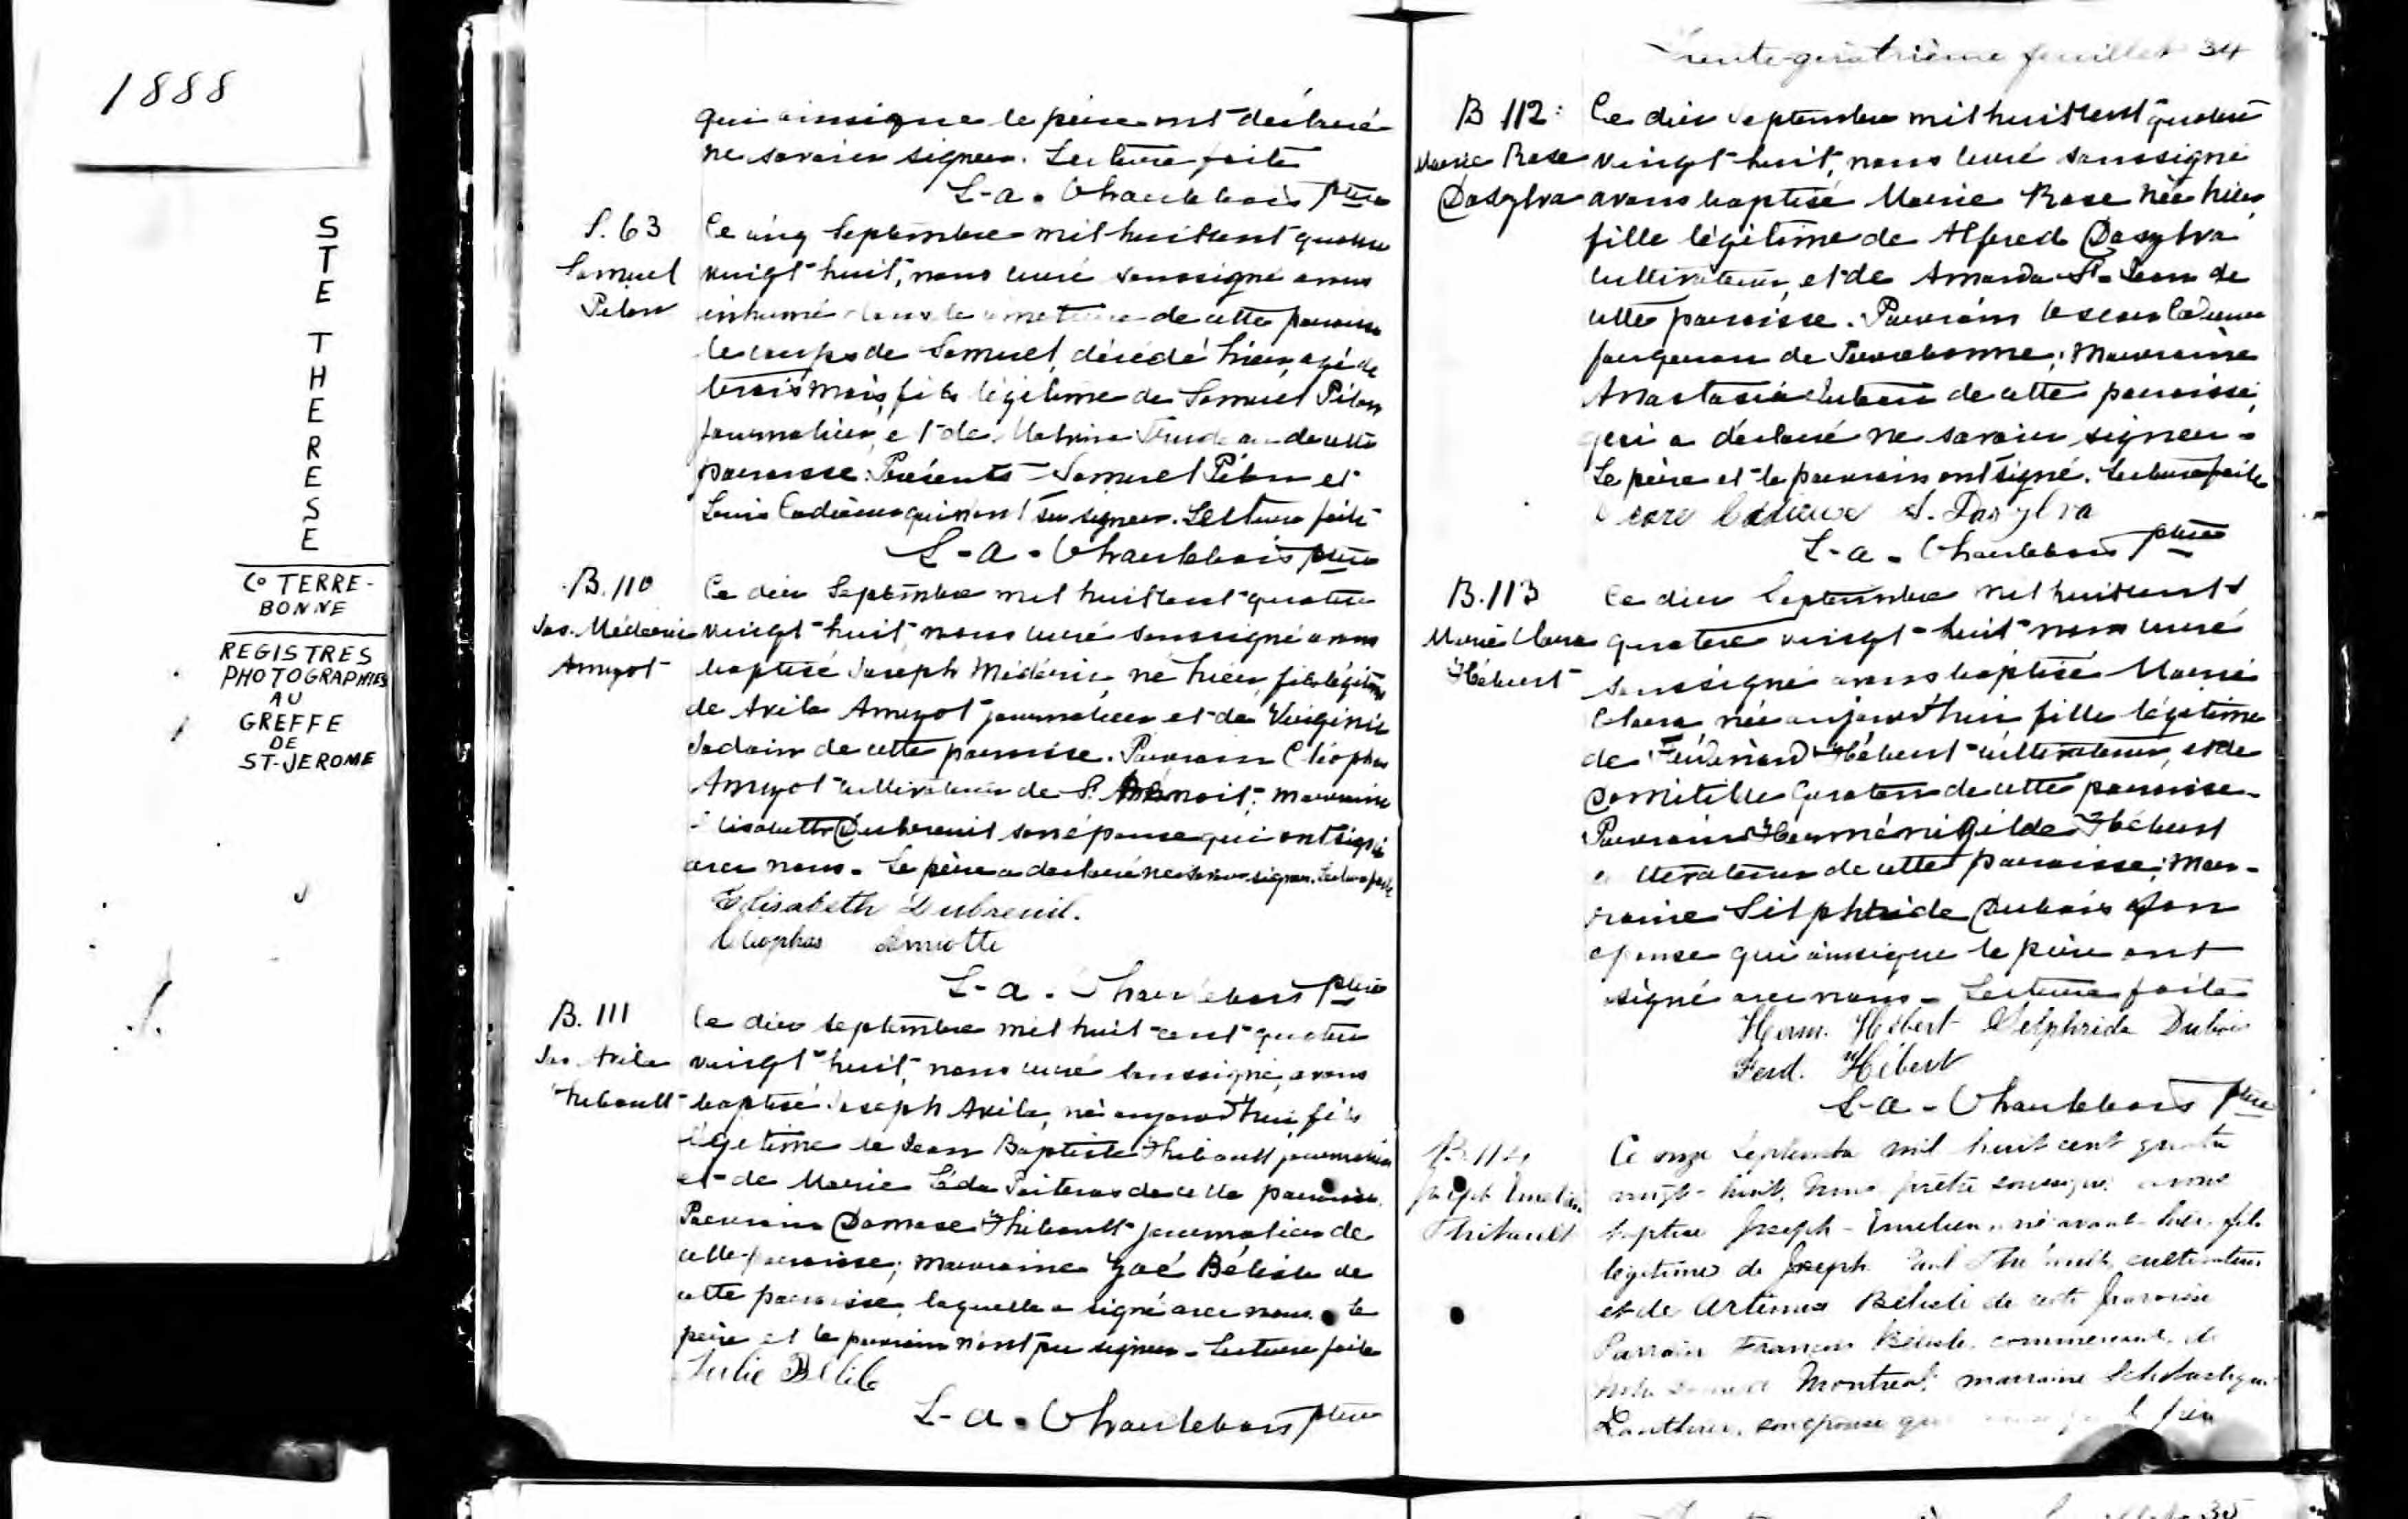 1888
STE THERESE
Co TERRE-
BONNE
REGISTRES
PHOTOGRAPHIES
AU
GREFFE
DE
ST-JEROME
qui ainsi que le père ont déclaré
ne savoir signer. Lecture faite
L-a. Charlebois ptre
S. 63
Samuel
Pilon
Ce cinq Septembre mil huit cent quatre
vingt-huit, nous curé soussigné avons
inhumé dans le cimetière de cette paroisse
le corps de Samuel, décédé hier, agé de
trois mois, fils légitime de Samuel Pilon
journalier, et de
paroisse. Présents Samuel Pilon et
Louis Cadieux qui n'ont su signer. Lecture faite
L-a. Charlebois ptre
B. 110
Jos. Médéric
Amyot
Ce dix Septembre mil huit cent quatre
vingt-huit, nous curé soussigné avons
baptisé Joseph Médéric, né hier, fils légitime
de Avila Amyot journalier et de Virginie
de cette paroisse. Parrain Cléophas
Amyot cultivateur de St Benoit; marraine
Elisabeth Dubreuil son épouse qui ont signé
avec nous. Le père a déclaré ne savoir signer. Lecture faite
Elisabeth Dubreuil.
Cléophas
L-a. Charlebois ptre
B. 111
Jos. Avila
Thibault
Ce dix septembre mil huit cent quatre
vingt-huit, nous curé soussigné, avons
baptisé Joseph Avila, né aujourd'hui, fils
légitime de Jean Baptiste Thibault journalier
et de Marie Léda de cette paroisse.
Parrain Damase Thibault journalier de
cette paroisse; marraine Zoé Bélisle de
cette paroisse, laquelle a signé avec nous. le
père et le parrain n'ont pu signer. Lecture faite
Julie
L-a. Charlebois ptre
Trente-quatrième feuillet 34
B 112:
Marie Rose
Dasylva
Ce dix septembre mil huit cent quatre
vingt-huit, nous curé soussigné
avons baptisé Marie Rose née hier,
fille légitime de Alfred Dasylva
cultivateur, et de Amanda St-Jean de
cette paroisse. Parrain Oscar Cadieux
forgeron de Terrebonne; Marraine
Anastasie de cette paroisse,
qui a déclaré ne savoir signer.
Le père et le parrain ont signé. Lecture faite
Oscar Cadieux A. Dasylva
L-a. Charlebois ptre
B. 113
Marie Clara
Hébert
Ce dix Septembre mil huit cent
quatre vingt-huit nous curé
soussigné avons baptisé Marie
Clara, née aujourd'hui fille légitime
de Ferdinand Hébert cultivateur, et de
Domitilde de cette paroisse.
Parrain Herménigilde Hébert
cultivateur de cette paroisse; Mar-
raine Dubois son
épouse qui ainsi que le père ont
signé avec nous. Lecture faite
Herm. Hébert Delphride Dubois
Ferd. Hébert
L-a. Charlebois ptre
B. 114
Joseph Emelien
Thibault
Ce onze Septembre mil huit cent quatre
vingt-huit, nous prêtre soussigné avons
baptisé Joseph-Emelien, né avant-hier, fils
légitime de Joseph Thibault, cultivateur
et de Bélisle de cette paroisse
Parrain François Bélisle, commerçant, de
Montréal; marraine Scholastique
son épouse qui
35